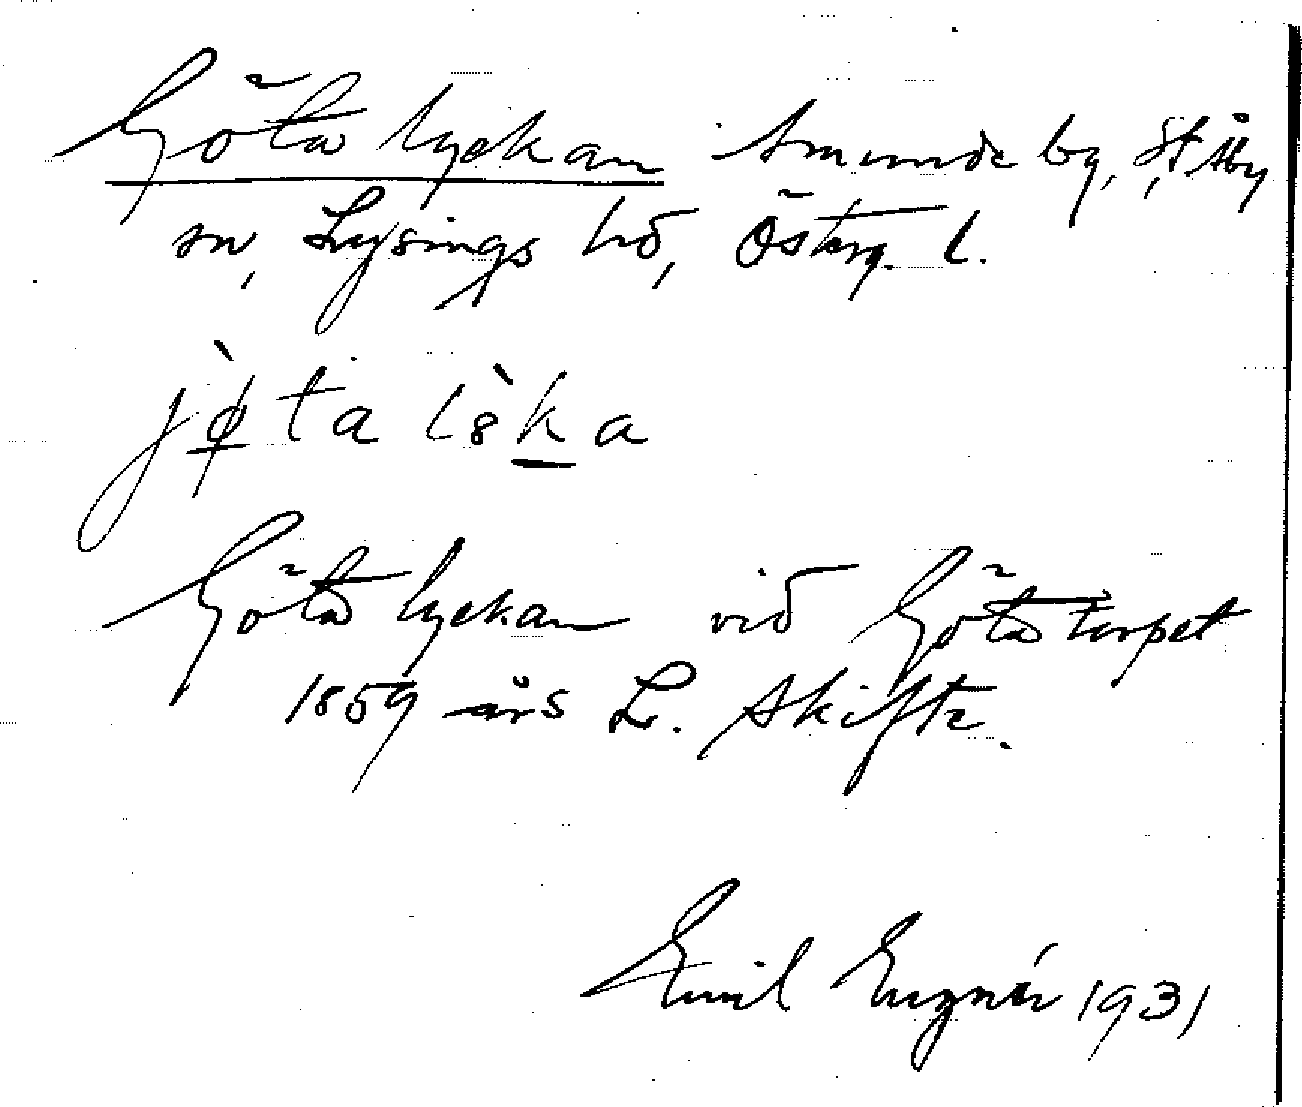 Götalyckan Smunde by, St Åby
sn, Lysings hd, Österg. l.
jø̀ta lò̤ka
Götalyckan vid Götatorpet
1859 års L. skifte.
Emil 1931